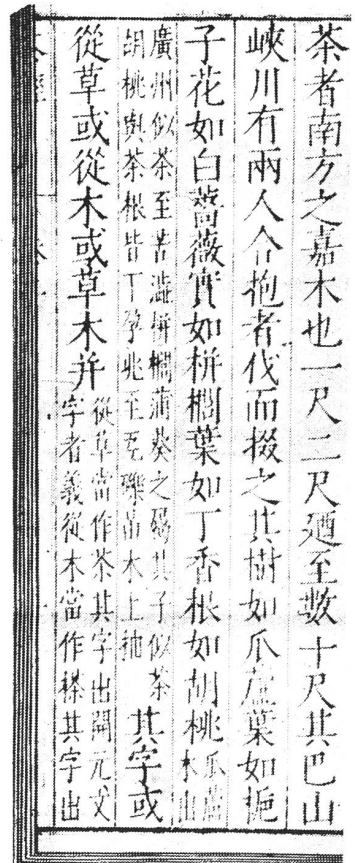 茶者南方之嘉木也一尺二尺廼至數十尺其巴山
峽川有兩人合抱者伐而掇之其樹如瓜蘆葉如梔
子花如白薔薇實如栟櫚葉如丁香根如胡桃瓜蘆木出
廣州似茶至苦澁栟櫚蒲葵之屬其子似茶
胡桃與茶根皆下孕兆至瓦礫苗木上抽其字或
從草或從木或草木并
從草當作茶其字出開元文
字者義從木當作㮈其字出